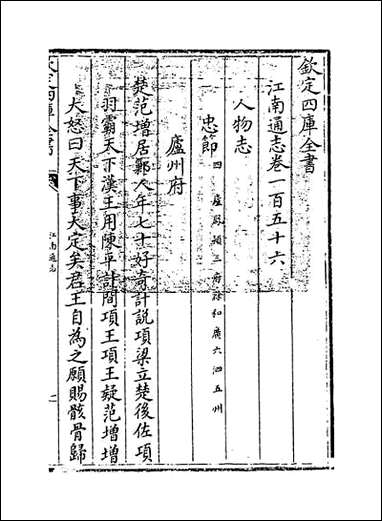 欽定四庫全書
江南通志卷一百五十六
人物志
忠節四 廬鳳潁三府滁和廣六泗五州
廬州府
楚范增居鄛人年七十好奇計說項梁立楚後佐項
羽霸天下漢王用陳平計間項王項王疑范增增
大怒曰天下事大定矣君王自為之願賜骸骨歸
江南通志